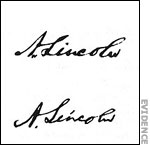 A. Lincoln
A. Lincoln
EVIDENCE